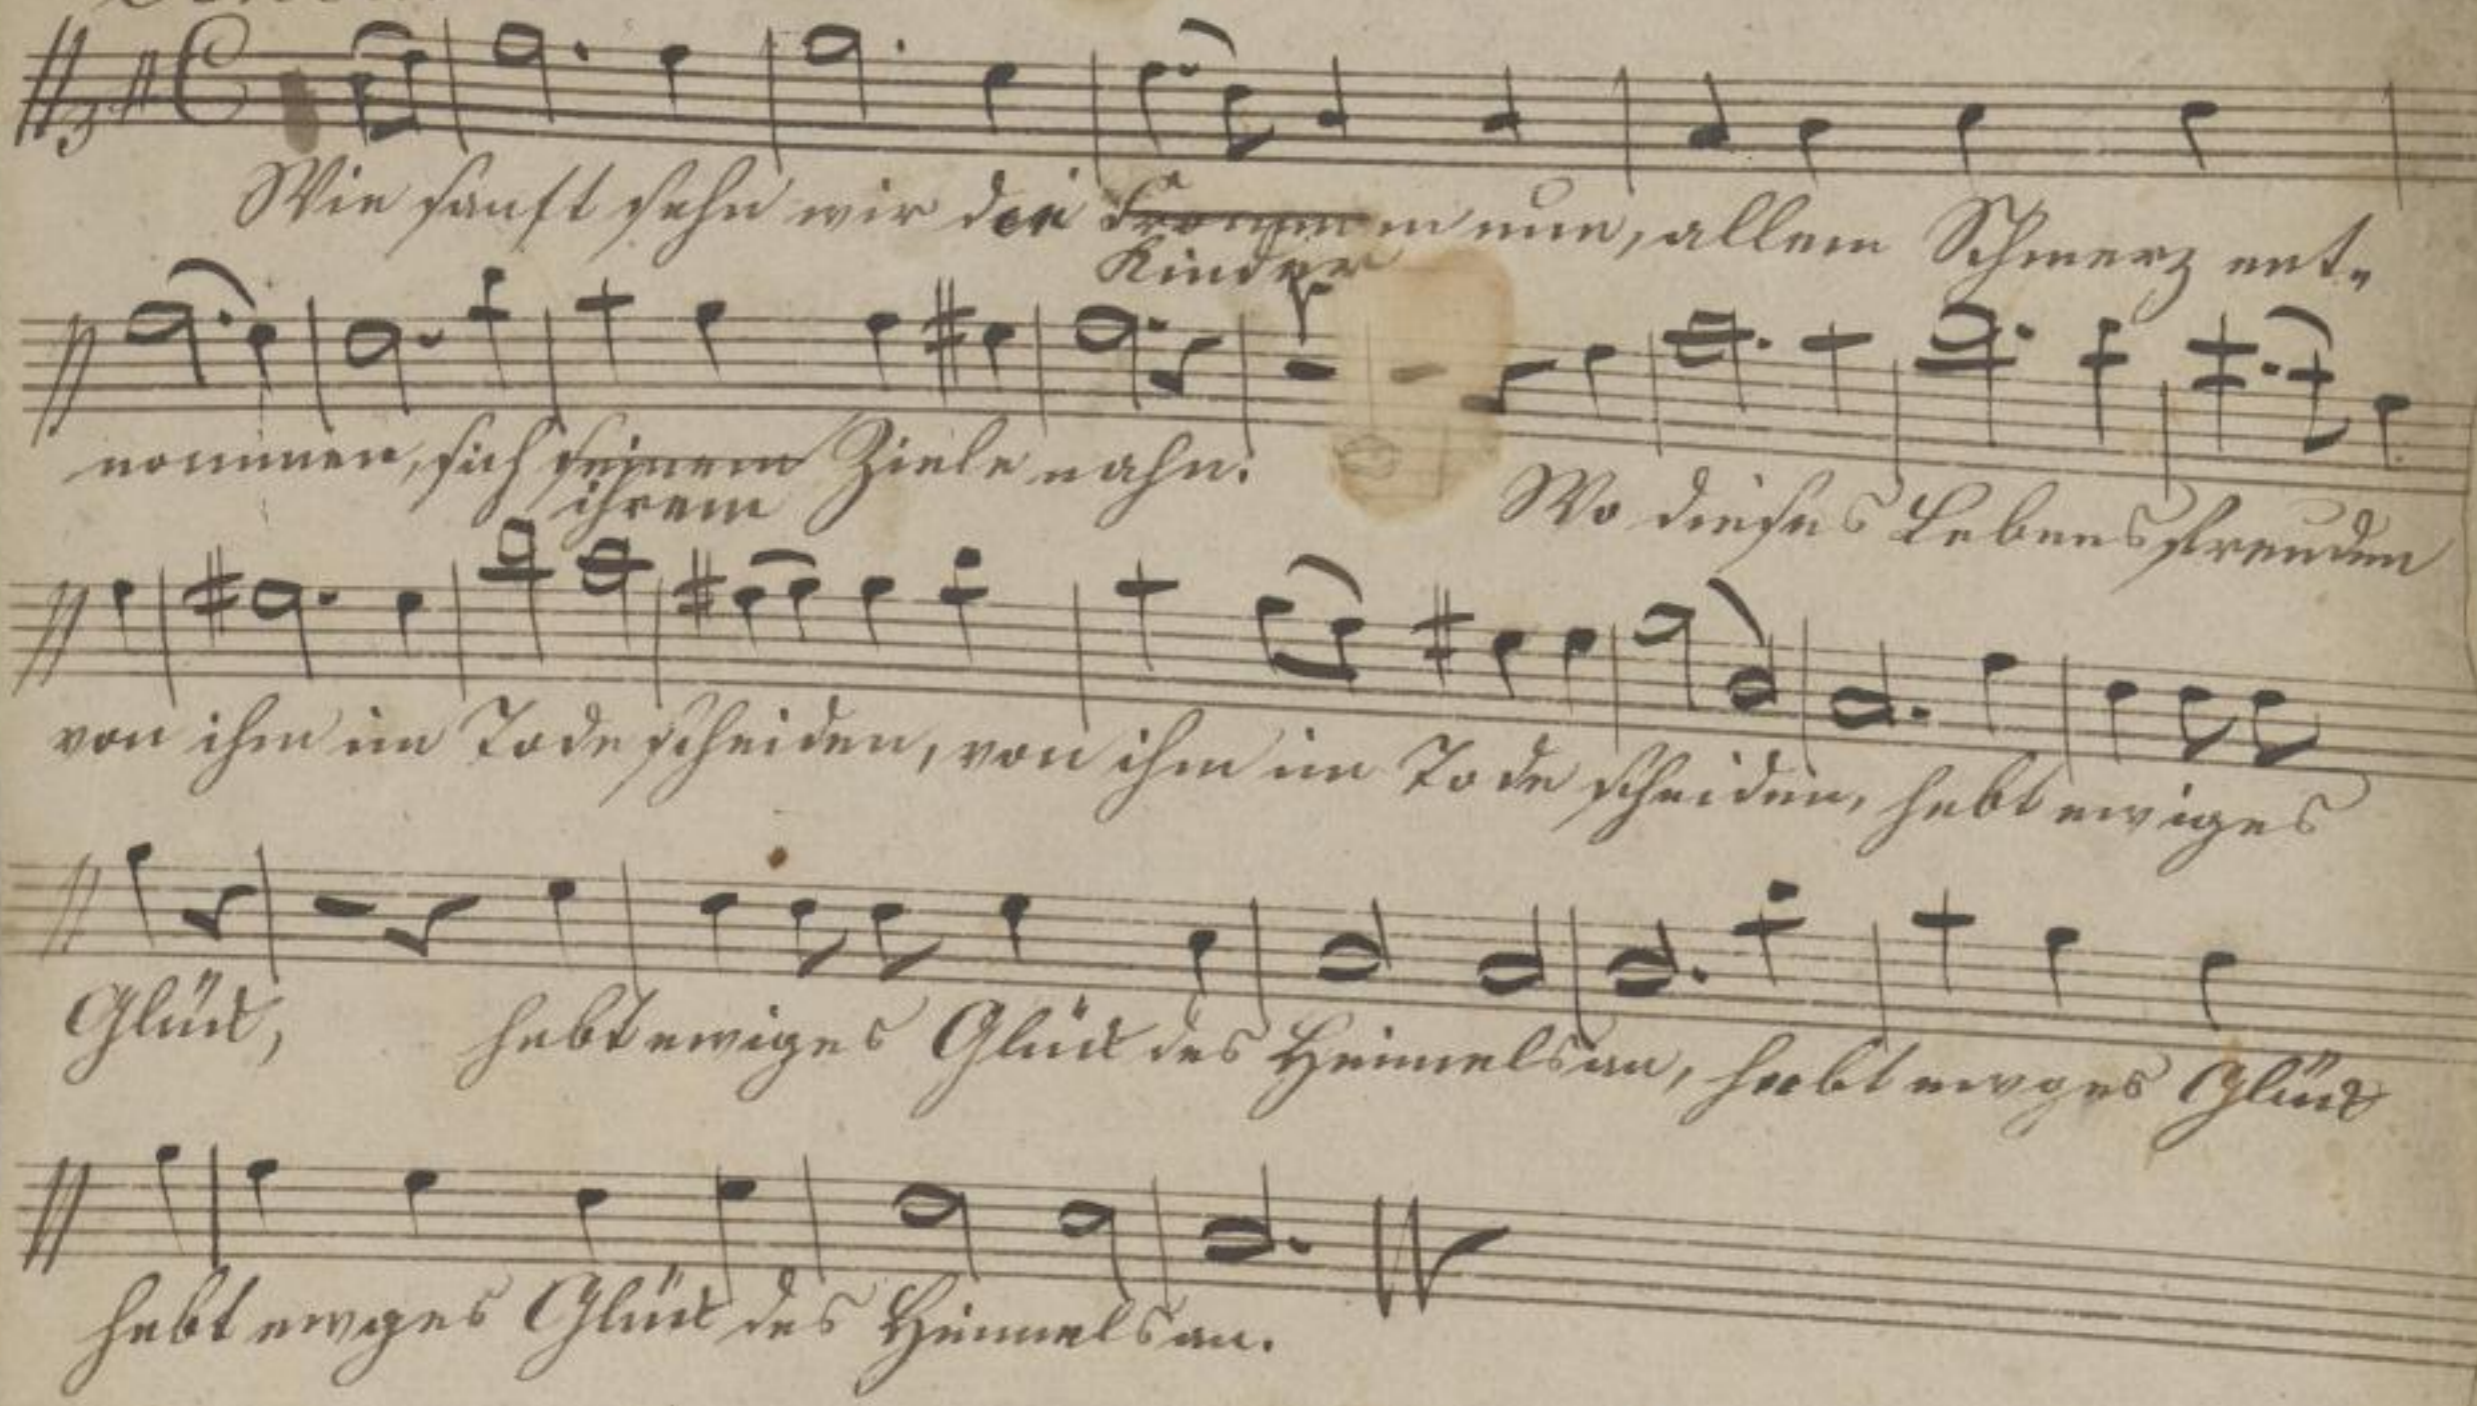 Wie sanft sehn wir die Frommen nun, allem Schmerz ent-
Kinder
nommen, sich seinem Ziele nahn.
ihrem
Wo dieses Lebens freuden
von ihm im Tode scheiden, von ihm im Tode scheiden, hebt ewiges
Glück, hebt ewiges Glück des Himmels an, hebt ewges Glück
hebt ewges Glück des Himmels an.